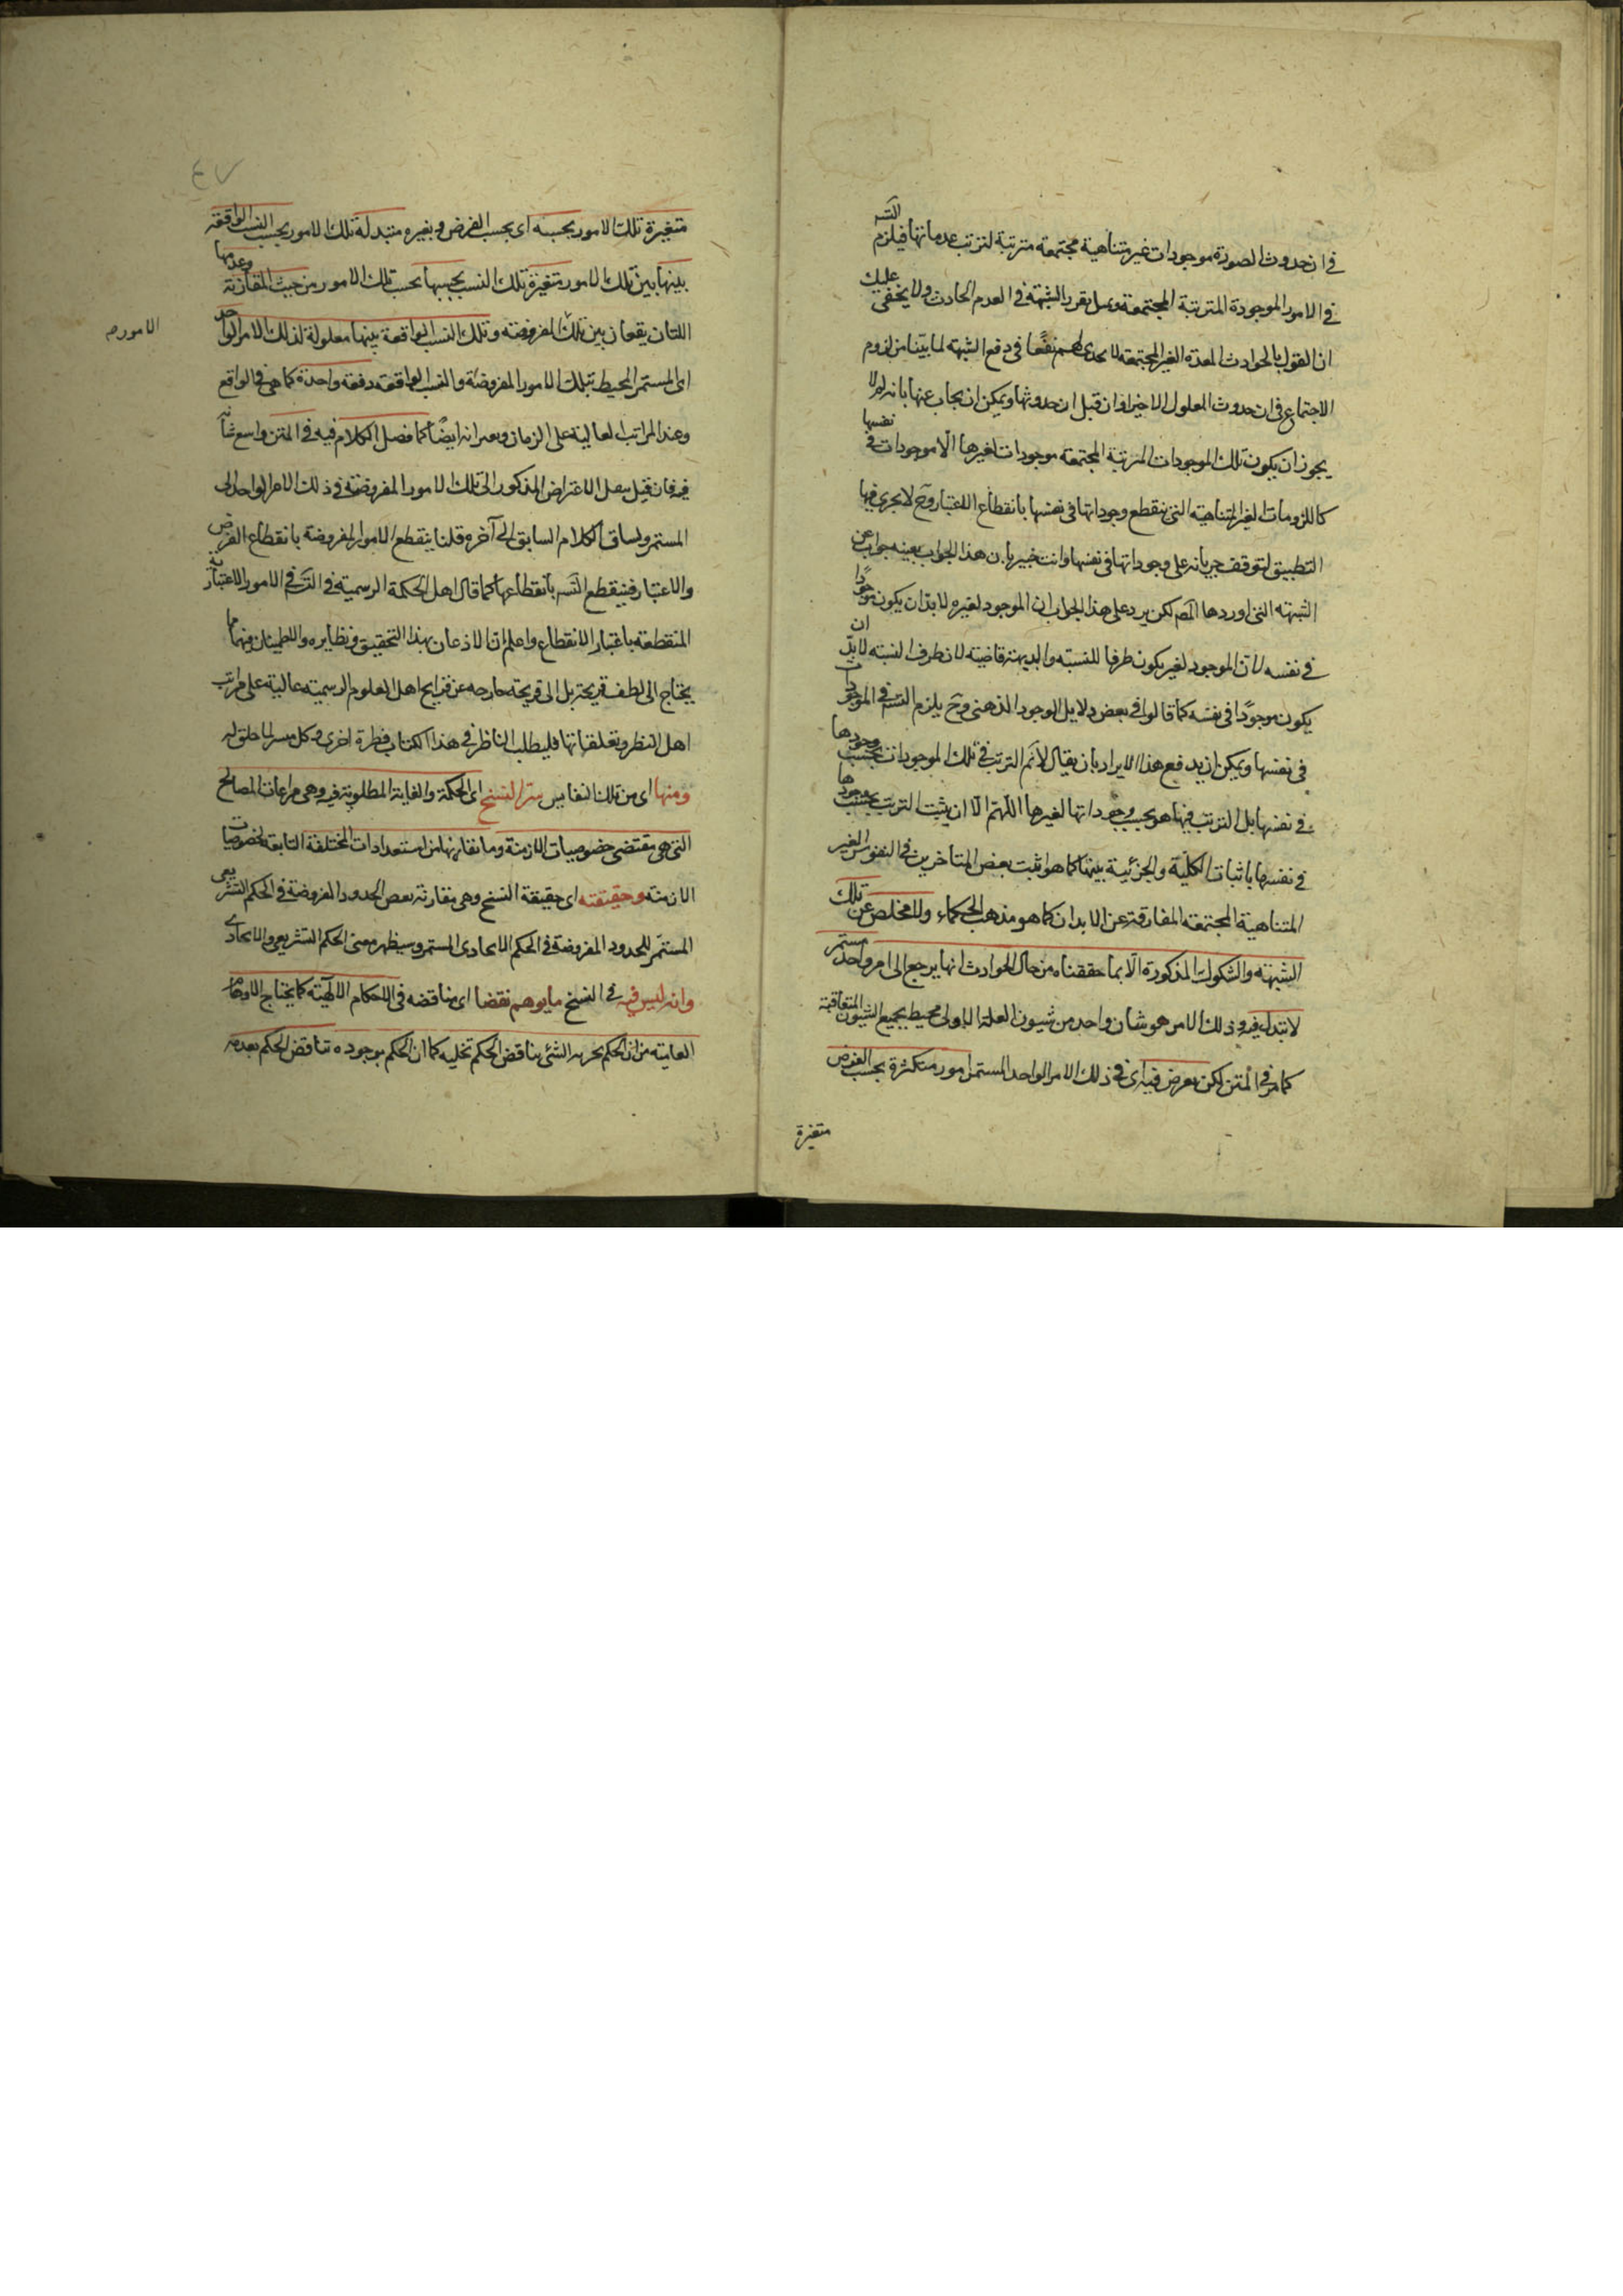 في ان حدوث الصورة موجودات غير متناهية مجتمعة مترتبة لترتب عدماتها فيلزم التسـ
في الامور الموجودة المترتبة المجتمعة وبمثل يقرر الشبهة في العدم الحادث ولا يخفى عليك
ان القول بالحوادث المعدة الغير المجتمعة لا يجدى لهم نفعًا في دفع الشبهة لما بيّنا من لزوم
الاجتماع في ان حدوث المعلول الاخير او ان قبل ان حدوثها ويمكن ان يجاب عنها بانه لم لا
يجوز ان يكون تلك الموجودات المترتبة المجتمعة موجودات لغيرها الّا موجودات في نفسها
كاللزومات الغير المتناهية التي ينقطع وجوداتها في نفسها بانقطاع الاعتبار وح لا يجري فيها
التطبيق لتوقف جريانه على وجوداتها في نفسها وانت خبير بان هذا الجواب بعينه جواب عن
الشبهة التي اوردها المصـ لكن يرد على هذا الجواب ان الموجود لغيره لا بدّ ان يكون موجودًا
في نفسه لانّ الموجود لغير يكون طرفا للنسبة والبديهة قاضية لان طرف النسبة لا بدّ ان
يكون موجودًا في نفسه كما قالوا في بعض دلايل الوجود الذهني وح يلزم التسـ في الموجودات
في نفسها ويمكن ان يدفع هذا الايراد بان يقال لانم الترتب في تلك الموجودات بحسب وجودها
في نفسها بل الترتب فيها هو بحسب وجوداتها لغيرها اللّهمّ الّا ان يثبت الترتب بحسب وجودها
في نفسها باثبات الكلّية والجزئية بينها كما هو اثبت بعض المتاخرين في النفوس الغير
المتناهية المجتمعة المفارقة عن الابدان كما هو مذهب الحكماء ولا مخلص عن تلك
الشبهة والشكوك المذكورة الّا بما حققناه من حال الحوادث انها يرجع الى امر واحد مستمر
لا تبدل فيه وذلك الامر هو شأن واحد من شيون العلة الاولى محيط بجميع الشيون المتعاقبة
كما مر في المتن لكن يعرض فيه اى في ذلك الامر الواحد المستمر امور متكثرة بحسب الفرض
متغيرة
متغيرة تلك الامور بحسبه اى بحسب الفرض وبغيره متبدلة تلك الامور بحسب النسب الواقعة
بينها بين تلك الامور متغيرة تلك النسب بحسبها بحسب تلك الامور من حيث المقارنة وعدمها
اللتان يقعان بين تلك المفروضة وتلك النسب الواقعة بينها معلولة لذلك الامر الواحد
الامور صـ
اى المستمر المحيط بتلك الامور المفروضة والنسب الواقعة دفعة واحدة كما هي في الواقع
وعند المراتب العالية على الزمان ايضًا كما فصل الكلام فيه في المتن واسع شأنه
فيه فان قيل الاعتراض المذكور الى تلك الامور المفروضة في ذلك الامر الواحد
المستمر ولساق الكلام السابق الى آخره قلنا ينقطع الامور المفروضة بانقطاع الفرض
والاعتبار فينقطع التسـ بانقطاعها كما قال اهل الحكمة الرسمية في التسـ في الامور الاعتبارية
المنقطعة باعتبار الانقطاع واعلم ان الاذعان بهذا التحقيق ونظايره والاطمينان فيها مما
يحتاج الى لطف قريحة بل الى قريحة خارجة عن قرايح اهل العلوم الرسمية عالية على مراتب
اهل النظر وتعلقاتها فليطلب الناظر في هذا الكتاب فطرة اخرى وكل ميسر لما خلق له
ومنها اى من تلك النفايس سرّ النسخ اى الحكمة والغاية المطلوبة فيه وهي مراعات المصالح
التي هي مقتضى خصوصيات الازمنة وما تقارنها من استعدادات المختلفة التابعة لخصوصيات
الازمنة وحقيقته اى حقيقة النسخ وهي مقارنة بعض الحدود المفروضة في الحكم التشريعى
المستمرّ للحدود المفروضة في الحكم الايجادى المستمر وسيظهر معنى الحكم التشريعي والايجادى
وانه ليس فيه في النسخ ما يوهم نقضا اى مناقضه في الاحكام الالهية كما يختاج الاوهام
العامية من ان الحكم بحرمة الشئ يناقض الحكم بحليه كما ان الحكم بوجوده تناقض الحكم بعدمه